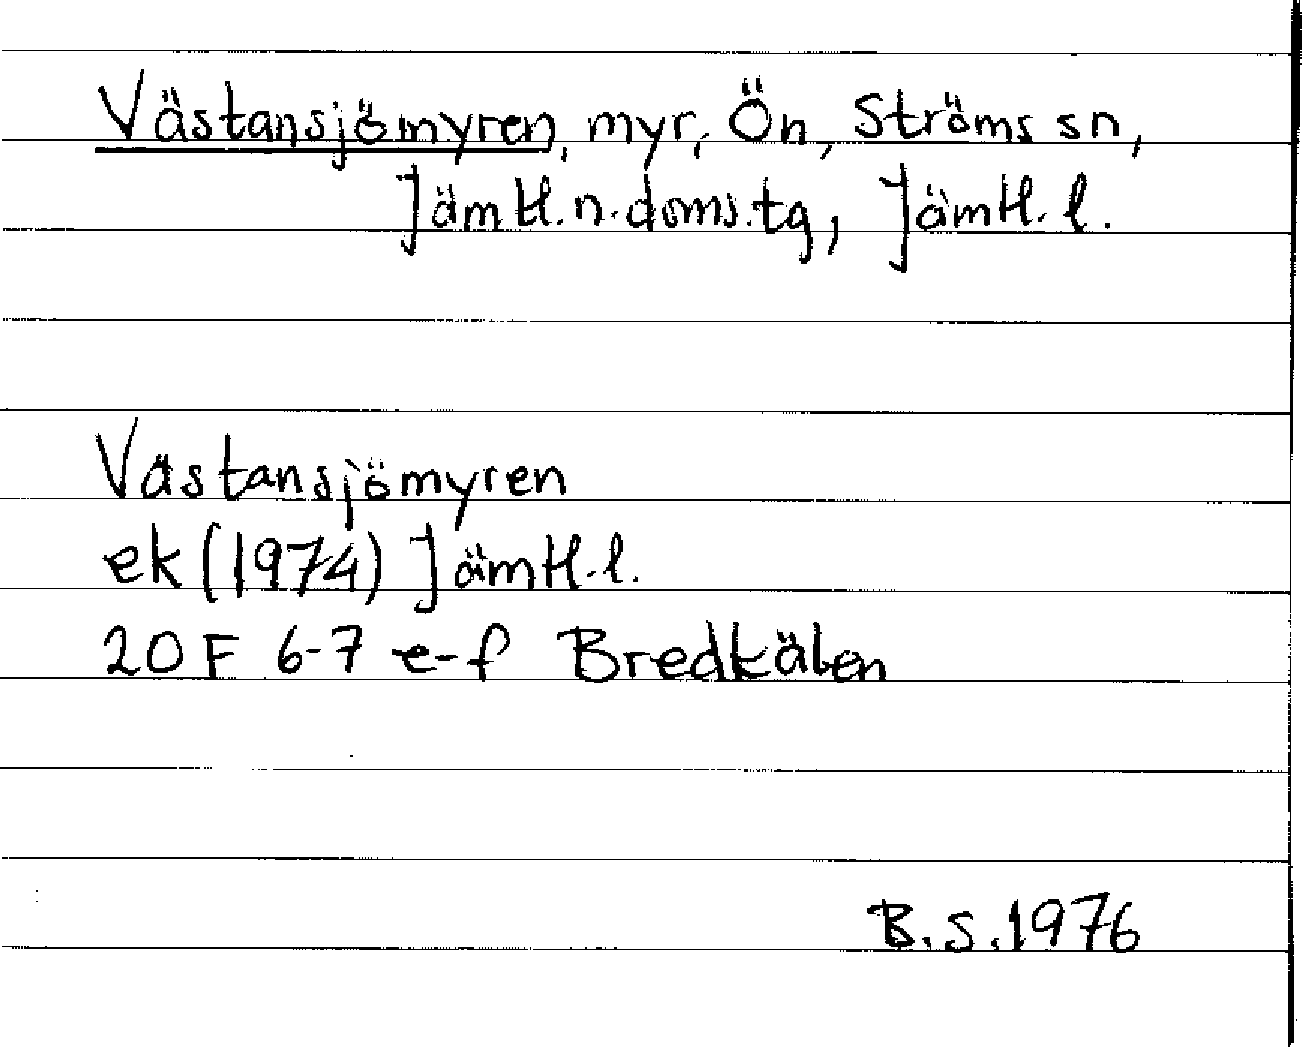 Västansjömyren, myr, Ön, Ströms sn,
Jämtl.n.doms.tg, Jämtl.l.
Västansjömyren
ek (1974) Jämtl.l.
20F 6-7 e-f Bredkälen
B.S.1976